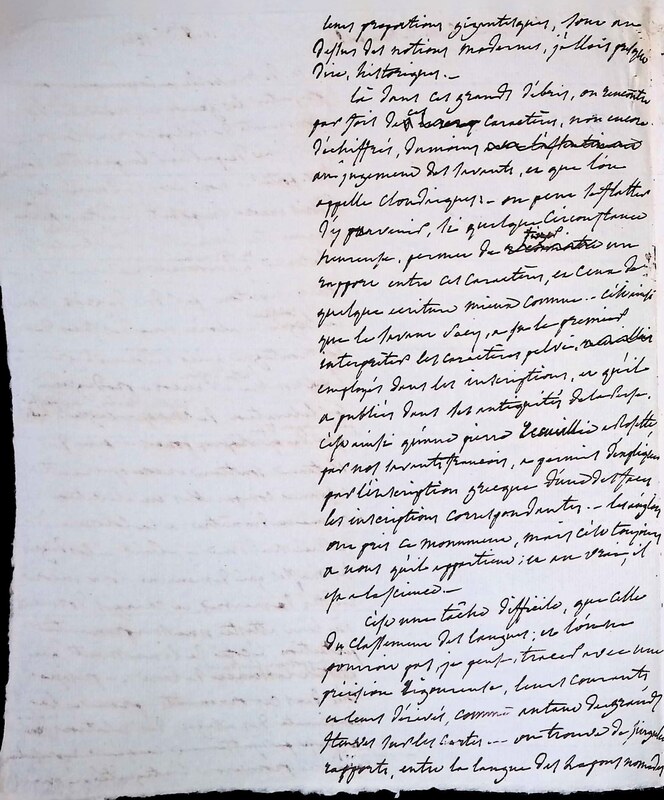 leurs proportions gigantesques, sont au
dessus des notions modernes, j'allois presque
dire, historiques. –
là dans ces grands débris, on rencontre
par fois des caractères, non encore
déchiffrés, du moins
au jugement des savants, et que l'on
appelle cloudiques: – on peut se flatter
d'y parvenir, si quelque circonstance
heureuse, permet de fixer un
rapport entre ces caractères, et ceux de
quelque écriture mieux connue – c'est ainsi
que le savant Sacy, a su le premier
interpréter les caractères pelvi,
employés dans les inscriptions, et qu'il
a publiés dans ses antiquités de la Perse.
C'est ainsi qu'une pierre recueillie a Rosette
par nos savants françois, a permis d'expliquer
par l'inscription grecque d'une des faces
les inscriptions correspondantes. – les anglois
ont pris ce monument, mais c'est toujours
a nous qu'il appartient; et au vrai, il
est a la science. –
C'est une tâche difficile, que celle
du classement des langues; et l'on ne
pourroit pas, je pense, tracer avec une
précision rigoureuse, leurs courants
et leurs dérivés, comme autant de grands
fleuves sur les cartes – – on trouve de singuliers
rapports, entre la langue des Lapons nomades